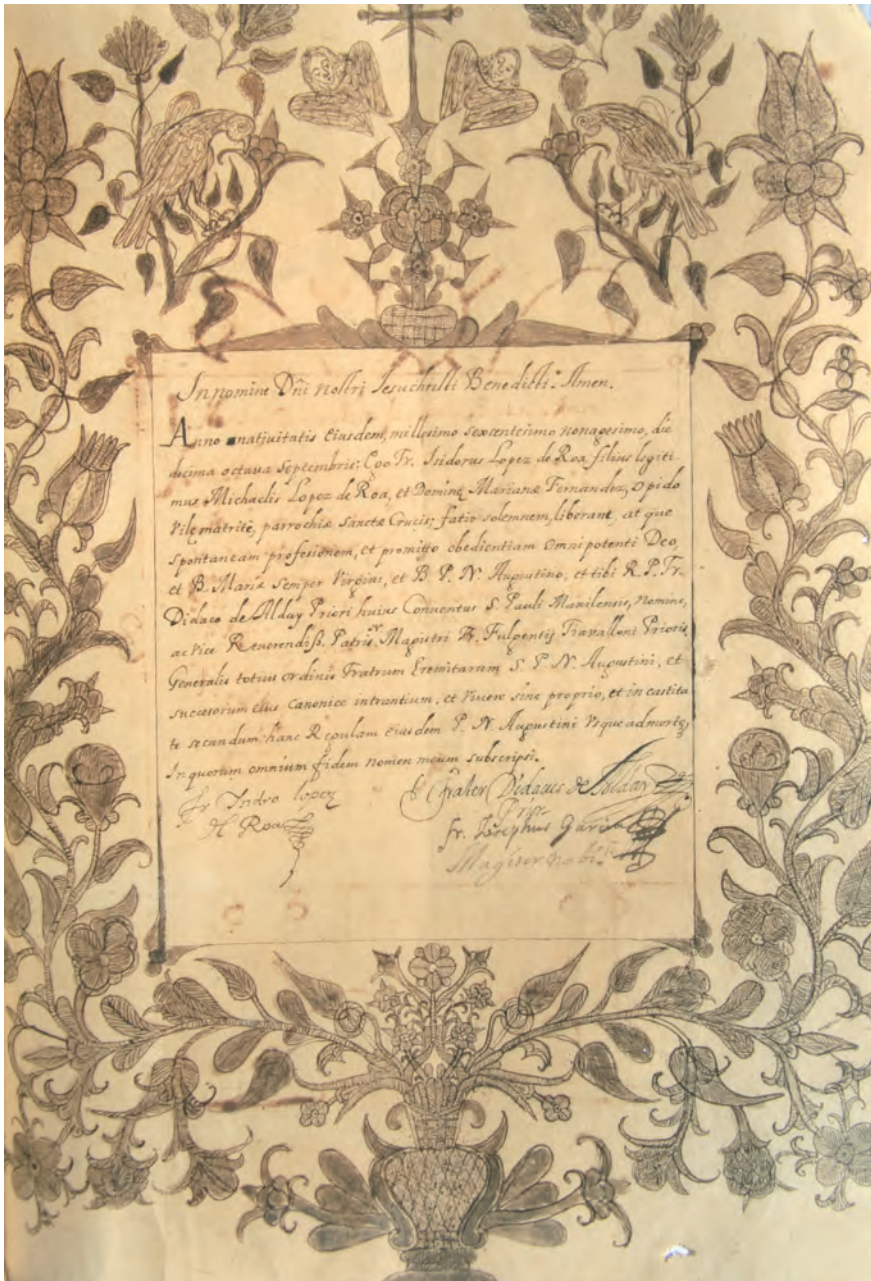 In nomine Dñi nostri Iesuchristi Benedicti. Amen.
Anno anativitatis eiusdem, millesimo sexcentesimo nonagesimo, die
decima octava Septembris: Ego Fr. Isidorus Lopez de Roa filius legiti-
mus Michaelis Lopez de Roa, et Dominę Marianæ Fernandez, Opido
Vilę matritę, parrochiæ Sanctæ Crucis; fatio solemnem, liberant, at que
spontaneam profesionem, et promitto obedientiam Omnipotenti Deo,
et B. Mariæ semper Virgini, et B. P. N. Augustino, et tibi R. P. Fr.
Didaco de Alday Priori huius Conventus S. Pauli Manilensis, nomine,
ac vice Reverendiss. Patris N. Magistri Fr. Fulgentij Travalloni Prioris
Generalis totius ordinis Fratrum Eremitarum S. P. N. Augustini, et
succesorum eius canonice intrantium, et vivere sine proprio, et in castita
te secundum hanc Regulam eiusdem P. N. Augustini Vsque ad mortẽ,
In quorum omnium fidem nomen meum subscripsi.
Fr Isidro lopez Frater Didacus de Alday
de Roa Prior
fr. Josephus Garcia
Magister nobit.